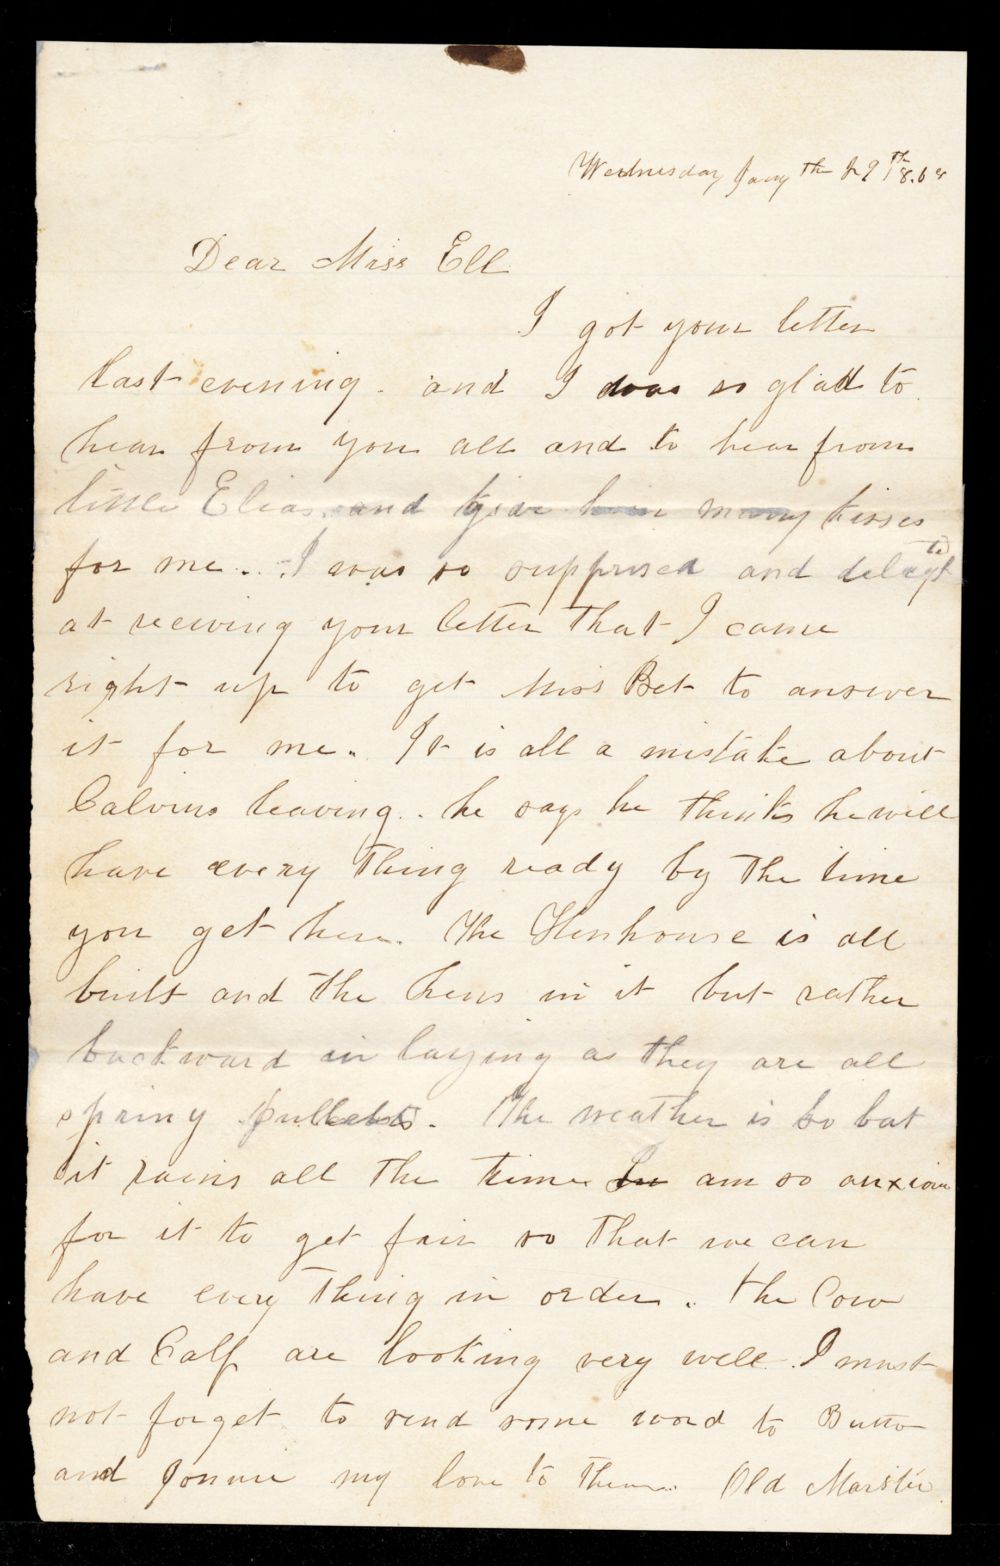 Wednesday Jany the 29th 1868
Dear Miss Ell
I got your letter
last evening. and I was so glad to
hear from you all and to hear from
little Elias. and give him many kisses
for me. . I was so supprised and delagted
at receving your letter that I came
right up to get Miss Bet to answer
it for me. It is all a mistake about
Calvins leaving. . he says he thinks he will
have every thing ready by the time
you get here. The Henhouse is all
built and the hens in it but rather
backward in laying as they are all
spring pullets. The weather is so bat
it rains all the time am so anxious
for it to get fair so that we can
have every thing in order. . the Cow
and Calf are looking very well. I must
not forget to send some word to Butto
and Jonnie my love to them. Old Marster